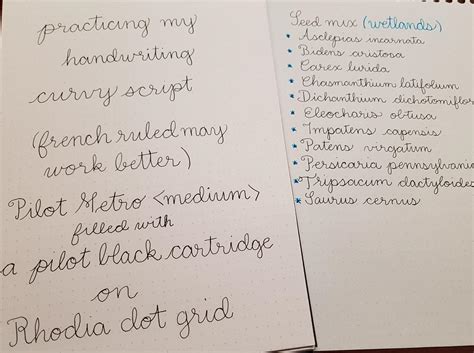 practicing my
handwriting
curvy script
(french ruled may
work better)
Pilot Metro <medium>
filled with
a pilot black cartridge
on
Rhodia dot grid
Seed mix (wetlands)
* Asclepias incarnata
* Bidens aristosa
* Carex lurida
* Chasmanthium latifolium
* Dichanthium dichotomiflor
* Eleocharis obtusa
* Impatens capensis
* Patens virgatum
* Persicaria pennsylvanic
* Tripsacum dactyloide
* Saurus cernus